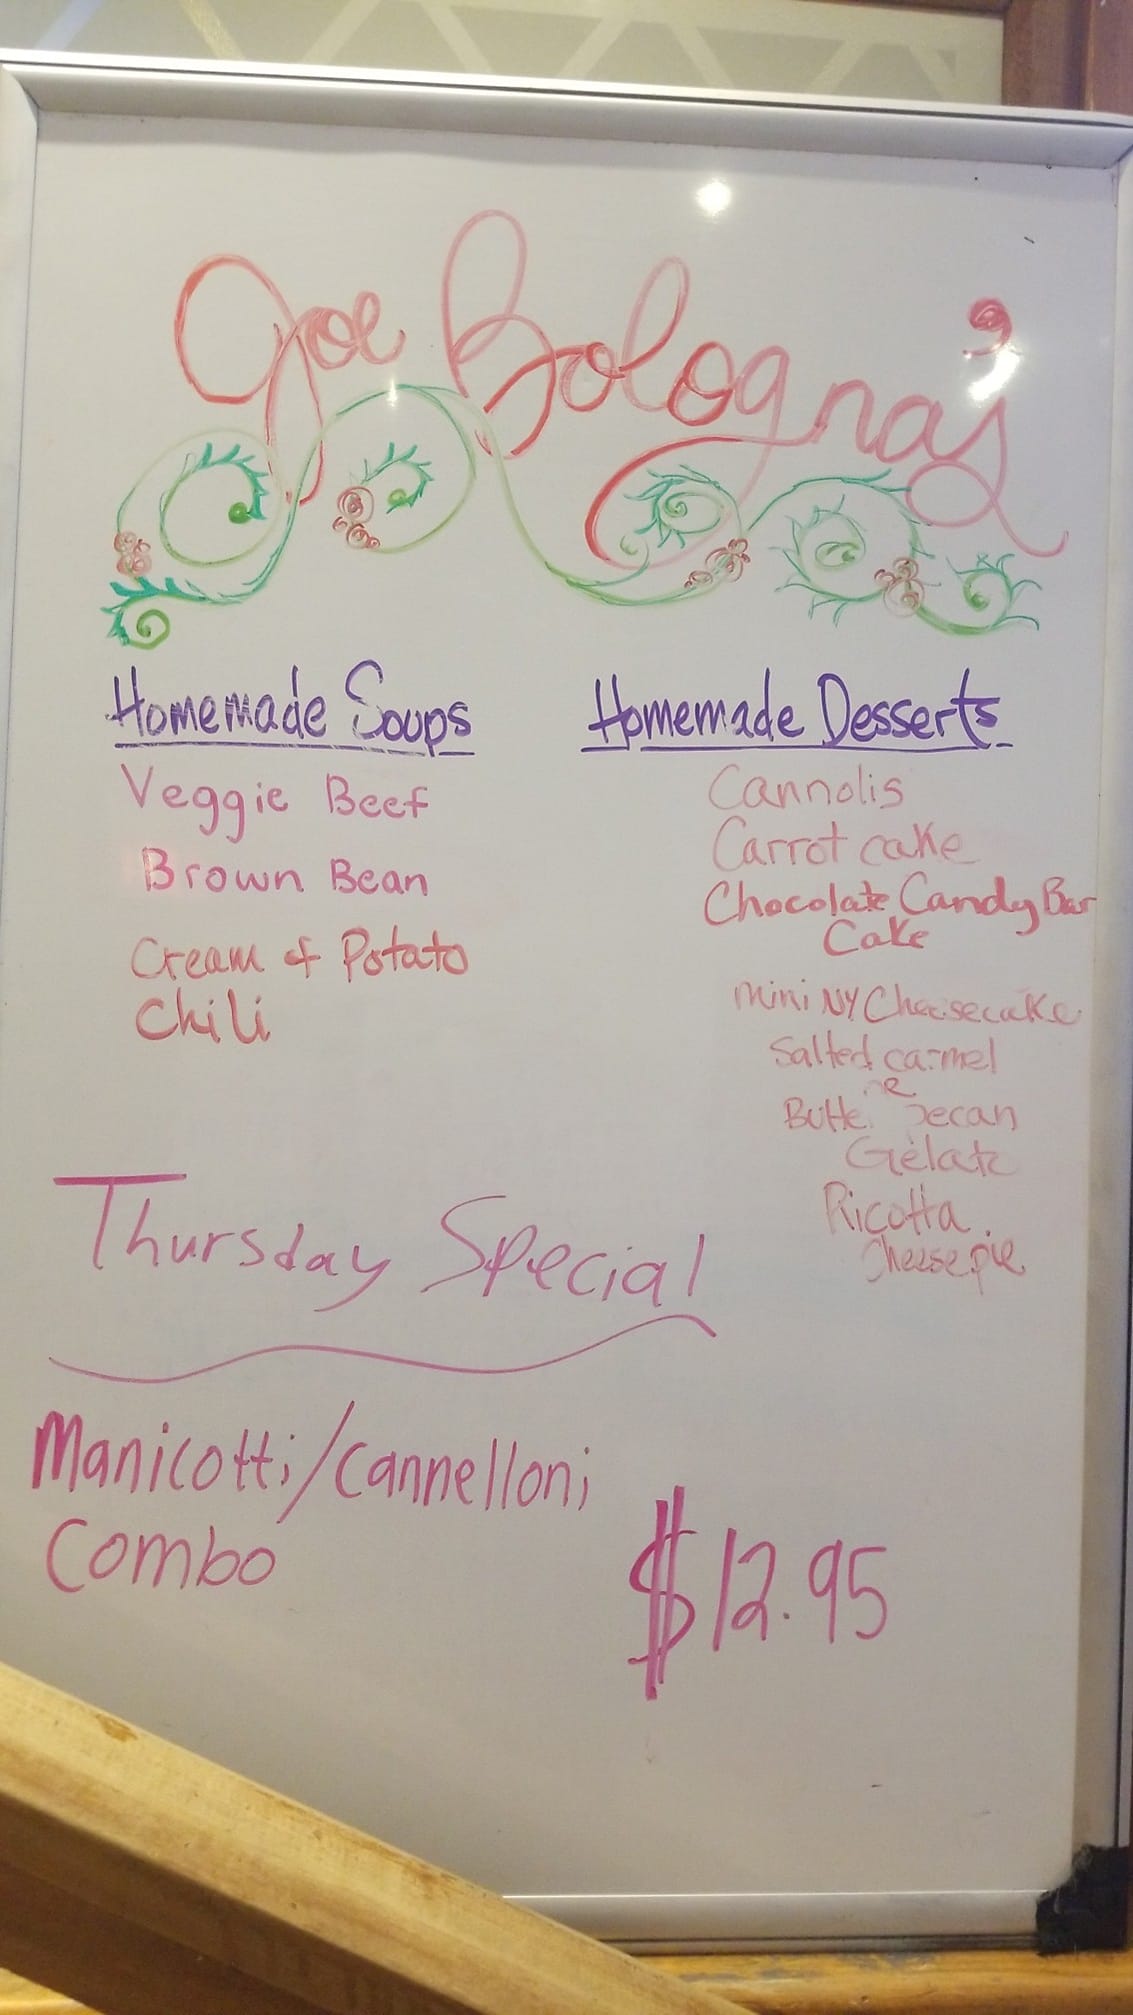 Joe Bologna's
Homemade Soups
Veggie Beef
Brown Bean
Cream of Potato
Chili
Homemade Desserts
Cannolis
Carrot cake
Chocolate Candy Bar
Cake
mini NY Cheesecake
Salted
Pecan
Ricotta
Cheese pie
Thursday Special
Manicotti/Cannelloni
Combo
$12.95